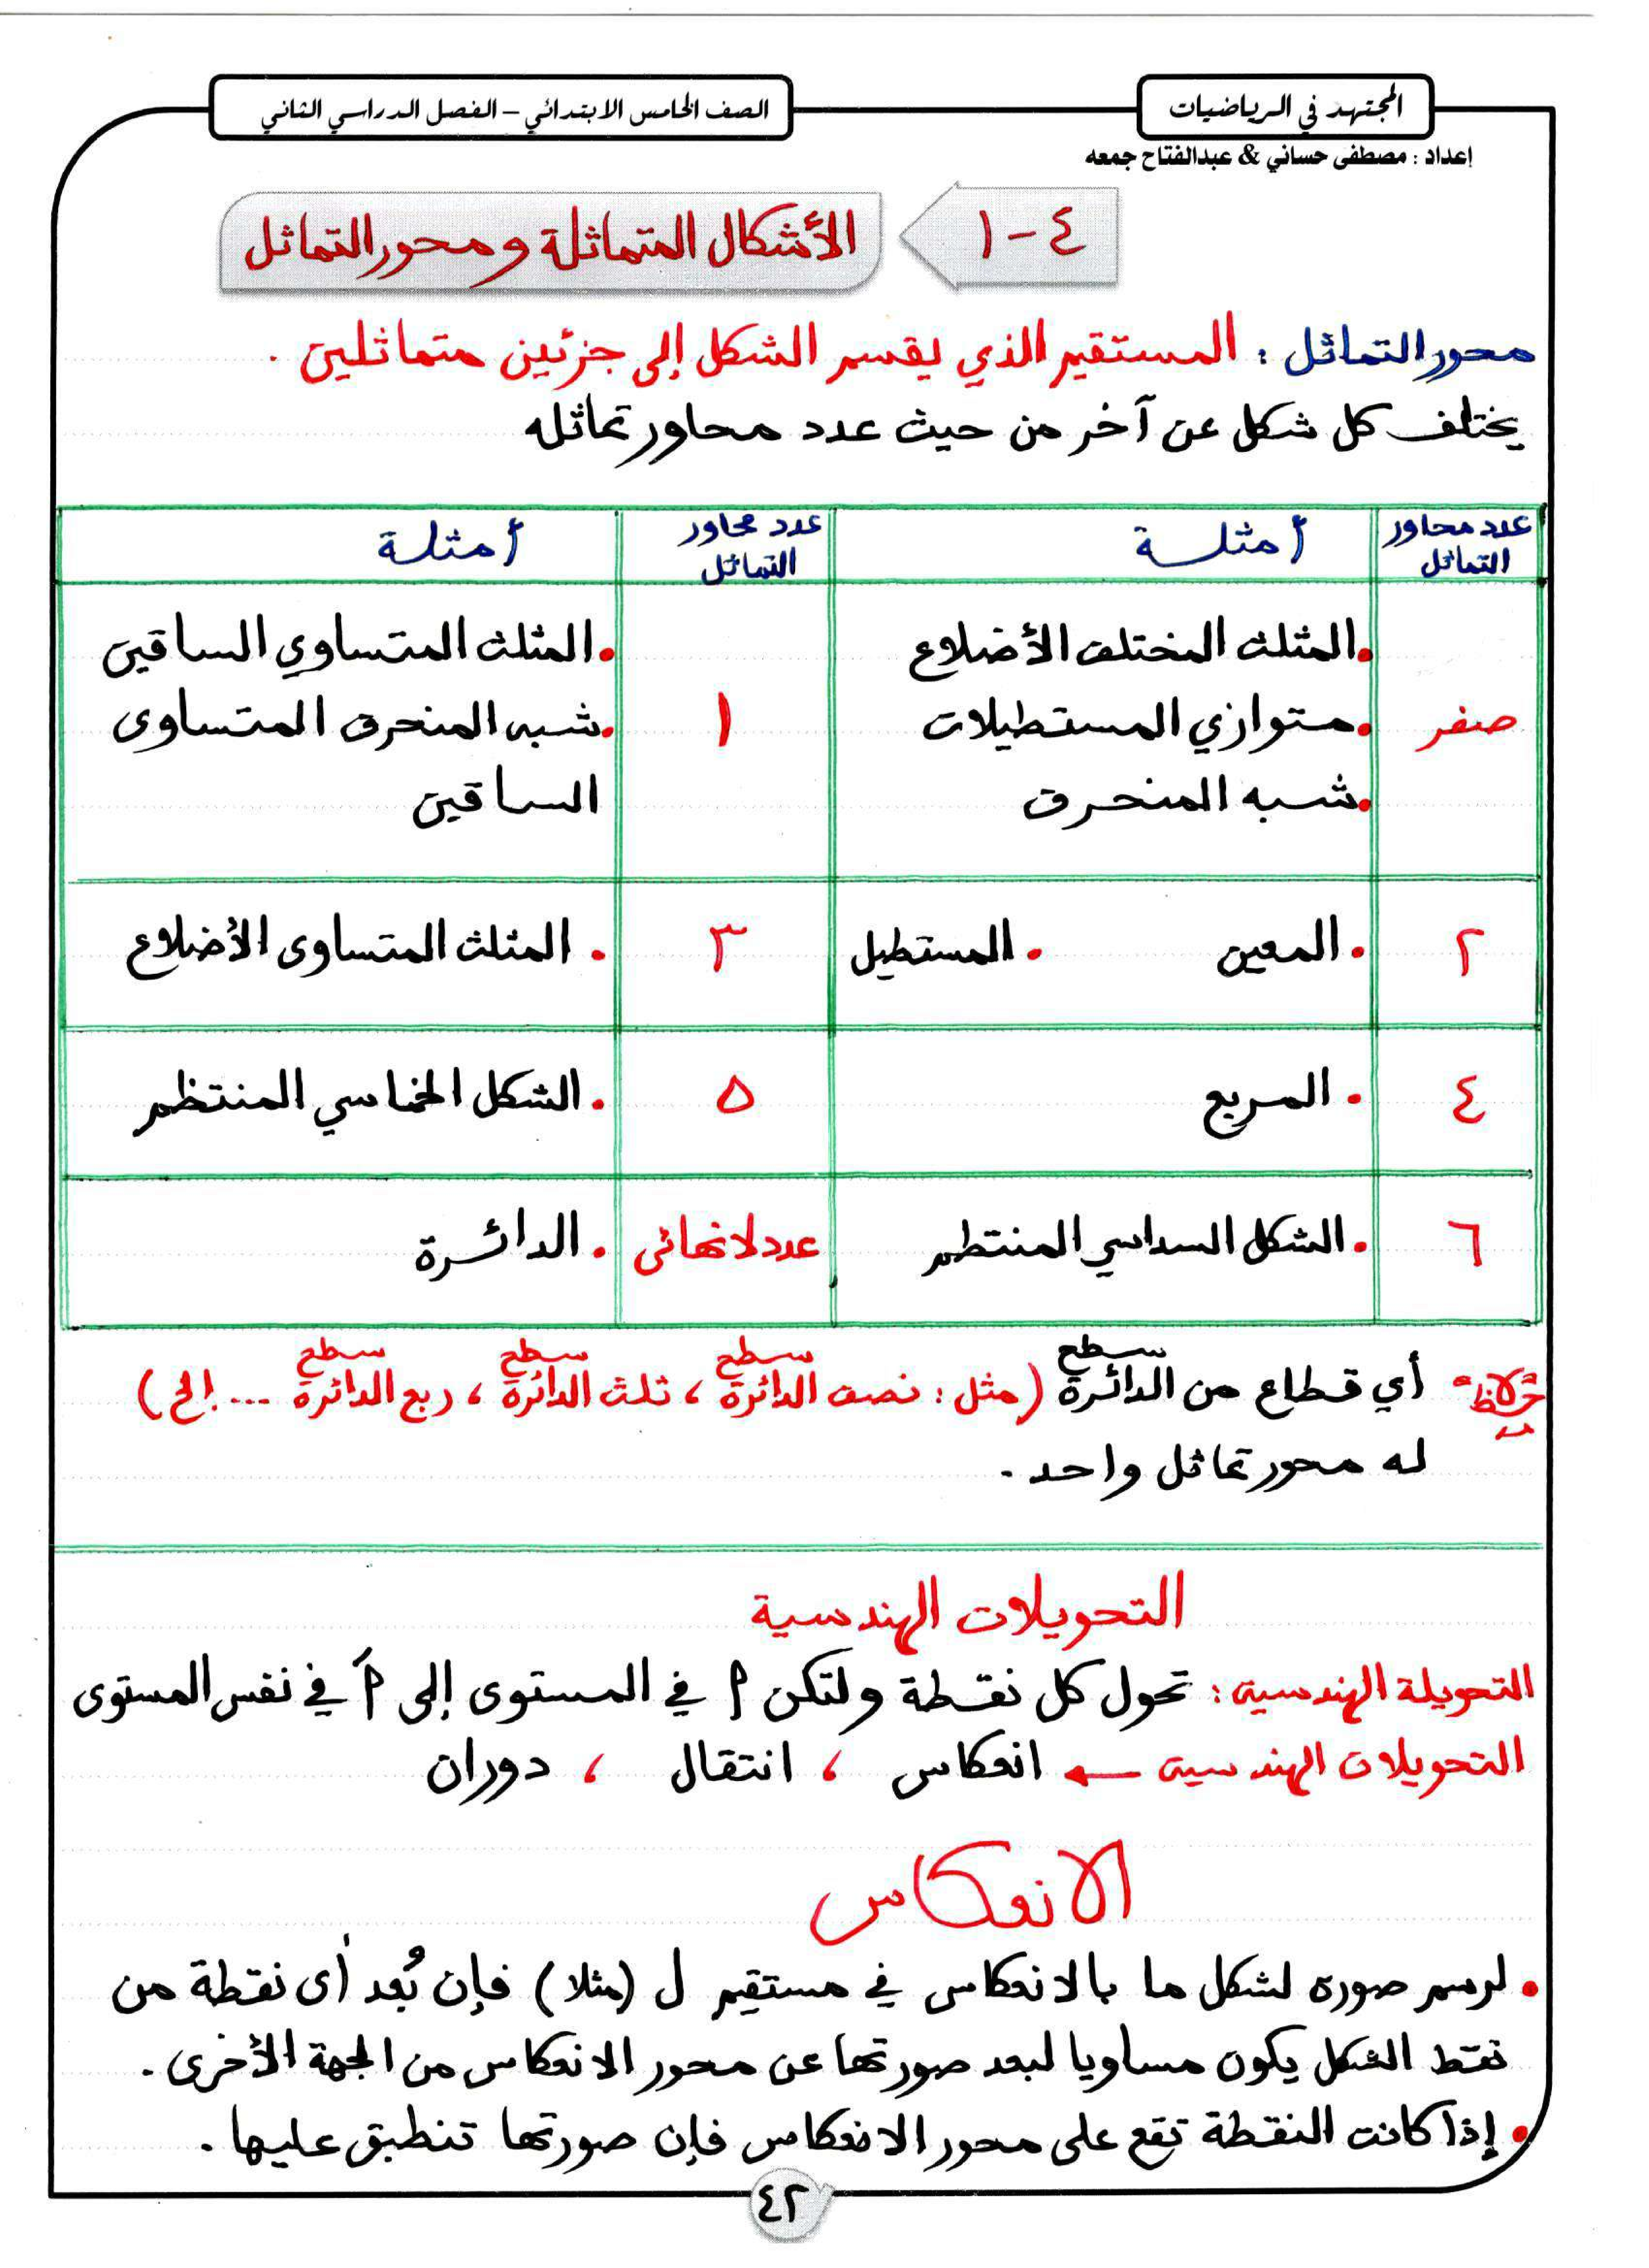 المجتهد في الرياضيات
الصف الخامس الابتدائي – الفصل الدراسي الثاني
إعداد : مصطفى حساني & عبدالفتاح جمعه
٤ - ١
الأشكال المتماثلة ومحور التماثل
محور التماثل : المستقيم الذي يقسم الشكل إلى جزئين متماثلين .
يختلف كل شكل عن آخر من حيث عدد محاور تماثله
عدد محاور التماثل أمثلة عدد محاور التماثل أمثلة
صفر
• المثلث المختلف الأضلاع
• متوازي المستطيلات
• شبه المنحرف
١
• المثلث المتساوي الساقين
• شبه المنحرف المتساوى
الساقين
٢ • المعين • المستطيل ٣ • المثلث المتساوى الأضلاع
٤ • المربع ٥ • الشكل الخماسي المنتظم
٦ • الشكل السداسي المنتظم عدد لا نهائى • الدائرة
لاحظ أي قطاع من سطح الدائرة (مثل : نصف سطح الدائرة ، ثلث سطح الدائرة ، ربع سطح الدائرة ... إلخ )
له محور تماثل واحد .
التحويلات الهندسية
التحويلة الهندسية : تحول كل نقطة ولتكن م في المستوى إلى مَ في نفس المستوى
التحويلات الهندسية ← انعكاس ، انتقال ، دوران
الانعكاس
• لرسم صورة لشكل ما بالانعكاس في مستقيم ل (مثلا) فإن بُعد أى نقطة من
نقط الشكل يكون مساويا لبعد صورتها عن محور الانعكاس من الجهة الأخرى .
• إذا كانت النقطة تقع على محور الانعكاس فإن صورتها تنطبق عليها .
٤٢